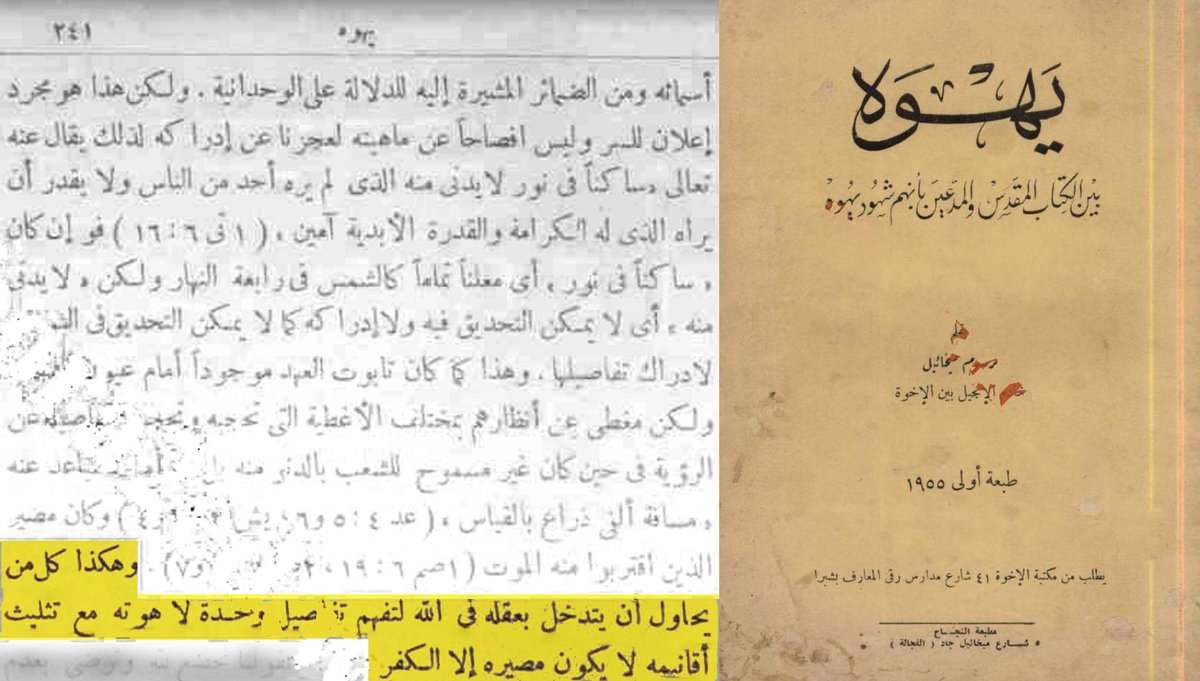 ٢٤١
يهوه
أسمائه ومن الضمائر المشيرة إليه للدلالة على الوحدانية . ولكن هذا هو مجرد
إعلان للسر وليس افصاحاً عن ماهيته لعجزنا عن إدراكه لذلك يقال عنه
تعالى « ساكناً فى نور لا يدنى منه الذى لم يره أحد من الناس ولا يقدر أن
يراه الذى له الكرامة والقدرة الأبدية آمين » ( ١ تى ٦ : ١٦ ) فهو إن كان
« ساكناً فى نور » أى معلناً تماماً كالشمس فى رابعة النهار ولكن « لا يدنى
منه » أى لا يمكن التحديق فيه ولا إدراكه كما لا يمكن التحديق فى
لادراك تفاصيلها . وهذا كما كان تابوت العهد موجوداً أمام عيون
ولكن مغطى عن أنظارهم بمختلف الأغطية التى تحجبه وتحجب تفاصيله عن
الرؤية فى حين كان غير مسموح للشعب بالدنو منه عنه
« مسافة ألفى ذراع بالقياس » ( عد ٤ : ٥ و ٦ ، يش ) وكان مصير
الذين اقتربوا منه الموت ( ١ صم ٦ : ١٩ ، ٢ و ٧ ) . وهكذا كل من
يحاول أن يتدخل بعقله فى الله لتفهم تفاصيل وحدة لاهوته مع تثليث
أقانيمه لا يكون مصيره إلا الكفر
يَهْوَه
بين الكتاب المقدس والمدّعين بأنهم شهود يهوه
بقلم
رسوم ميخائيل
الإنجيل بين الإخوة
طبعة أولى ١٩٥٥
يطلب من مكتبة الإخوة ٤١ شارع مدارس رقى المعارف بشبرا
مطبعة النجاح
٥ شارع ميخائيل جاد ( الفجالة )